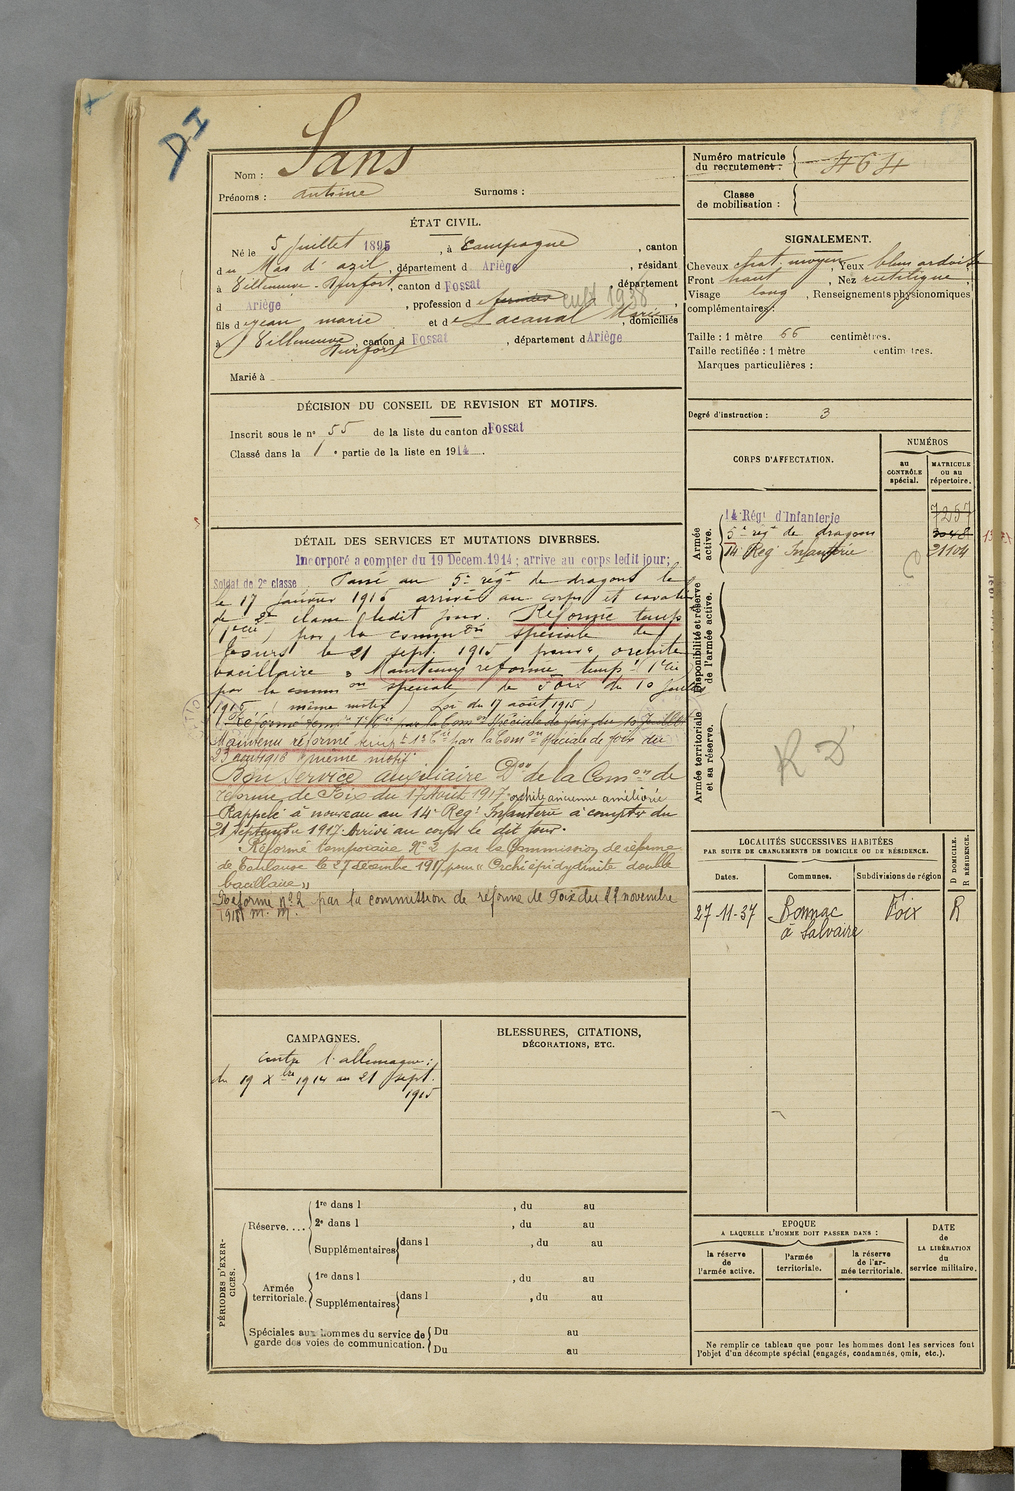 DI
Nom : Sans
Prénoms : antoine Surnoms :
ÉTAT CIVIL.
Né le 5 Juillet 1895, à Campagne, canton
du Mas d'azil, département d Ariège, résidant
à Villeneuve-Durfort, canton d Fossat, département
d Ariège, profession d cult 1938
fils de jean marie et de Lacanal Marie, domiciliés
à Villeneuve Durfort, canton d Fossat, département d Ariège
Marié à
DÉCISION DU CONSEIL DE REVISION ET MOTIFS.
Inscrit sous le n° 55 de la liste du canton d Fossat
Classé dans la 1e partie de la liste en 1914.
DÉTAIL DES SERVICES ET MUTATIONS DIVERSES.
Incorporé a compter du 19 Décem. 1914 ; arrivé au corps ledit jour ;
Soldat de 2e classe. Passé au 5e régt de dragons le
le 17 janvier 1915 arrivé au corps et cavalier
de 2e classe ledit jour. Réformé temp
par la common spéciale de
le 21 sept. 1915 pour "orchite
bacillaire" Maintenu réformé temp.
par la common spéciale de Foix du 10 juillet
(même motif) Loi du 17 août 1915)
Réformé temp par la Comon spéciale de foix du 10 Juillet
Maintenu réformé temp par la Comon spéciale de foix du
23 août 1916 même motif.
Bon service auxiliaire Don de la Comon de
réforme de Foix du 17 Août 1917 : orchite ancienne améliorée
Rappelé à nouveau au 14e Regt Infanterie à compter du
21 Septembre 1917. Arrivé au corps le dit jour.
Réformé temporaire N° 2 par la Commission de réforme
de Toulouse le 27 décembre 1917 pour "Orchiépidydimite double
bacillaire"
Réformé n° 2 par la commission de réforme de Foix du 29 novembre
1918 m. m.
CAMPAGNES.
contre l'allemagne :
du 19 Xbre 1914 au 21 sept.
1915
BLESSURES, CITATIONS,
DÉCORATIONS, ETC.
PÉRIODES D'EXERCICES.
Réserve.... 1re dans l , du au
2e dans l , du au
Supplémentaires dans l , du au
Armée territoriale. 1re dans l , du au
Supplémentaires dans l , du au
Spéciales aux hommes du service de garde des voies de communication. Du au
Du au
Numéro matricule
du recrutement : 464
Classe
de mobilisation :
SIGNALEMENT.
Cheveux chat. moyen, Yeux bleu ardoise
Front haut, Nez rectiligne
Visage long, Renseignements physionomiques
complémentaires :
Taille : 1 mètre 66 centimètres.
Taille rectifiée : 1 mètre centimètres.
Marques particulières :
Degré d'instruction : 3
CORPS D'AFFECTATION.
NUMÉROS
au CONTRÔLE spécial.
MATRICULE OU AU répertoire.
Armée active.
14e Régt d'Infanterie 7257
5e régt de dragons
14e Regt Infanterie 21104
Disponibilité et réserve de l'armée active.
Armée territoriale et sa réserve.
R D
LOCALITÉS SUCCESSIVES HABITÉES
PAR SUITE DE CHANGEMENTS DE DOMICILE OU DE RÉSIDENCE.
D DOMICILE.
R RÉSIDENCE.
Dates. Communes. Subdivisions de région
27-11-37 Bonnac Foix R
à Salvaire
EPOQUE
A LAQUELLE L'HOMME DOIT PASSER DANS :
la réserve de l'armée active.
l'armée territoriale.
la réserve de l'armée territoriale.
DATE de LA LIBÉRATION du service militaire.
Ne remplir ce tableau que pour les hommes dont les services font
l'objet d'un décompte spécial (engagés, condamnés, omis, etc.).